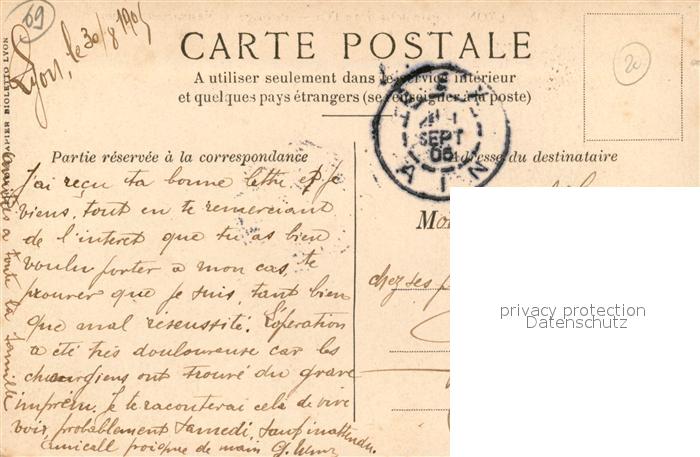 69
Lyon, le 30/8 1905
CARTE POSTALE
A utiliser seulement dans le service intérieur
et quelques pays étrangers (se renseigner à la poste)
20
SEPT
05
AIN
PAPIER BIOLETTO LYON
Partie réservée à la correspondance
Adresse du destinataire
J'ai reçu ta bonne lettre et je
viens, tout en te remerciant
de l'interet que tu as bien
voulu porter à mon cas, te
prouver que je suis, tant bien
que mal réseussité. L'opération
a été très douloureuse car les
chirurgiens ont trouvé du grave
imprévu. Je te raconterai cela de vive
voix, probablement samedi, sauf inattendu.
Amicall poignée de main
à toute la famille
Mo
chez ses
privacy protection
Datenschutz